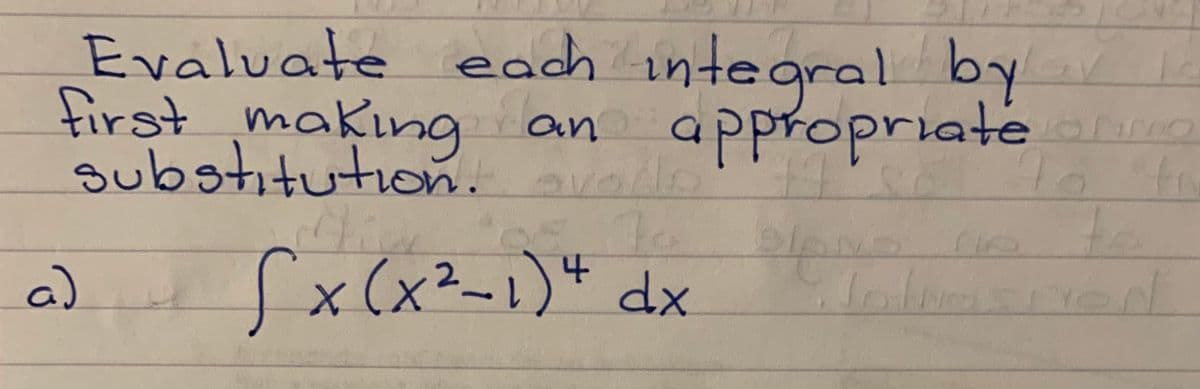 Evaluate each integral by
first making an appropriate
substitution.
a) ∫ x (x²-1)⁴ dx